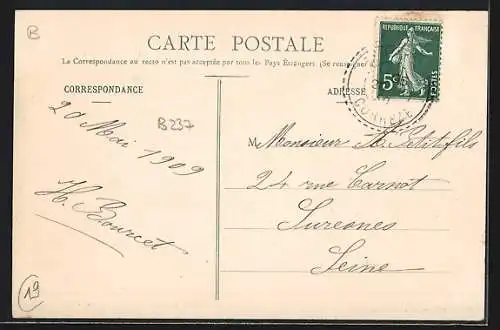 B
CARTE POSTALE
La Correspondance au recto n'est pas acceptée par tous les Pays Étrangers. (Se renseigner
REPUBLIQUE FRANÇAISE
5c
POSTES
CORRÈZE
CORRESPONDANCE
ADRESSE
20 Mai 1909
B237
H. Bourcet
M Monsieur H. Petitfils
24 rue Carnot
Suresnes
Seine
19